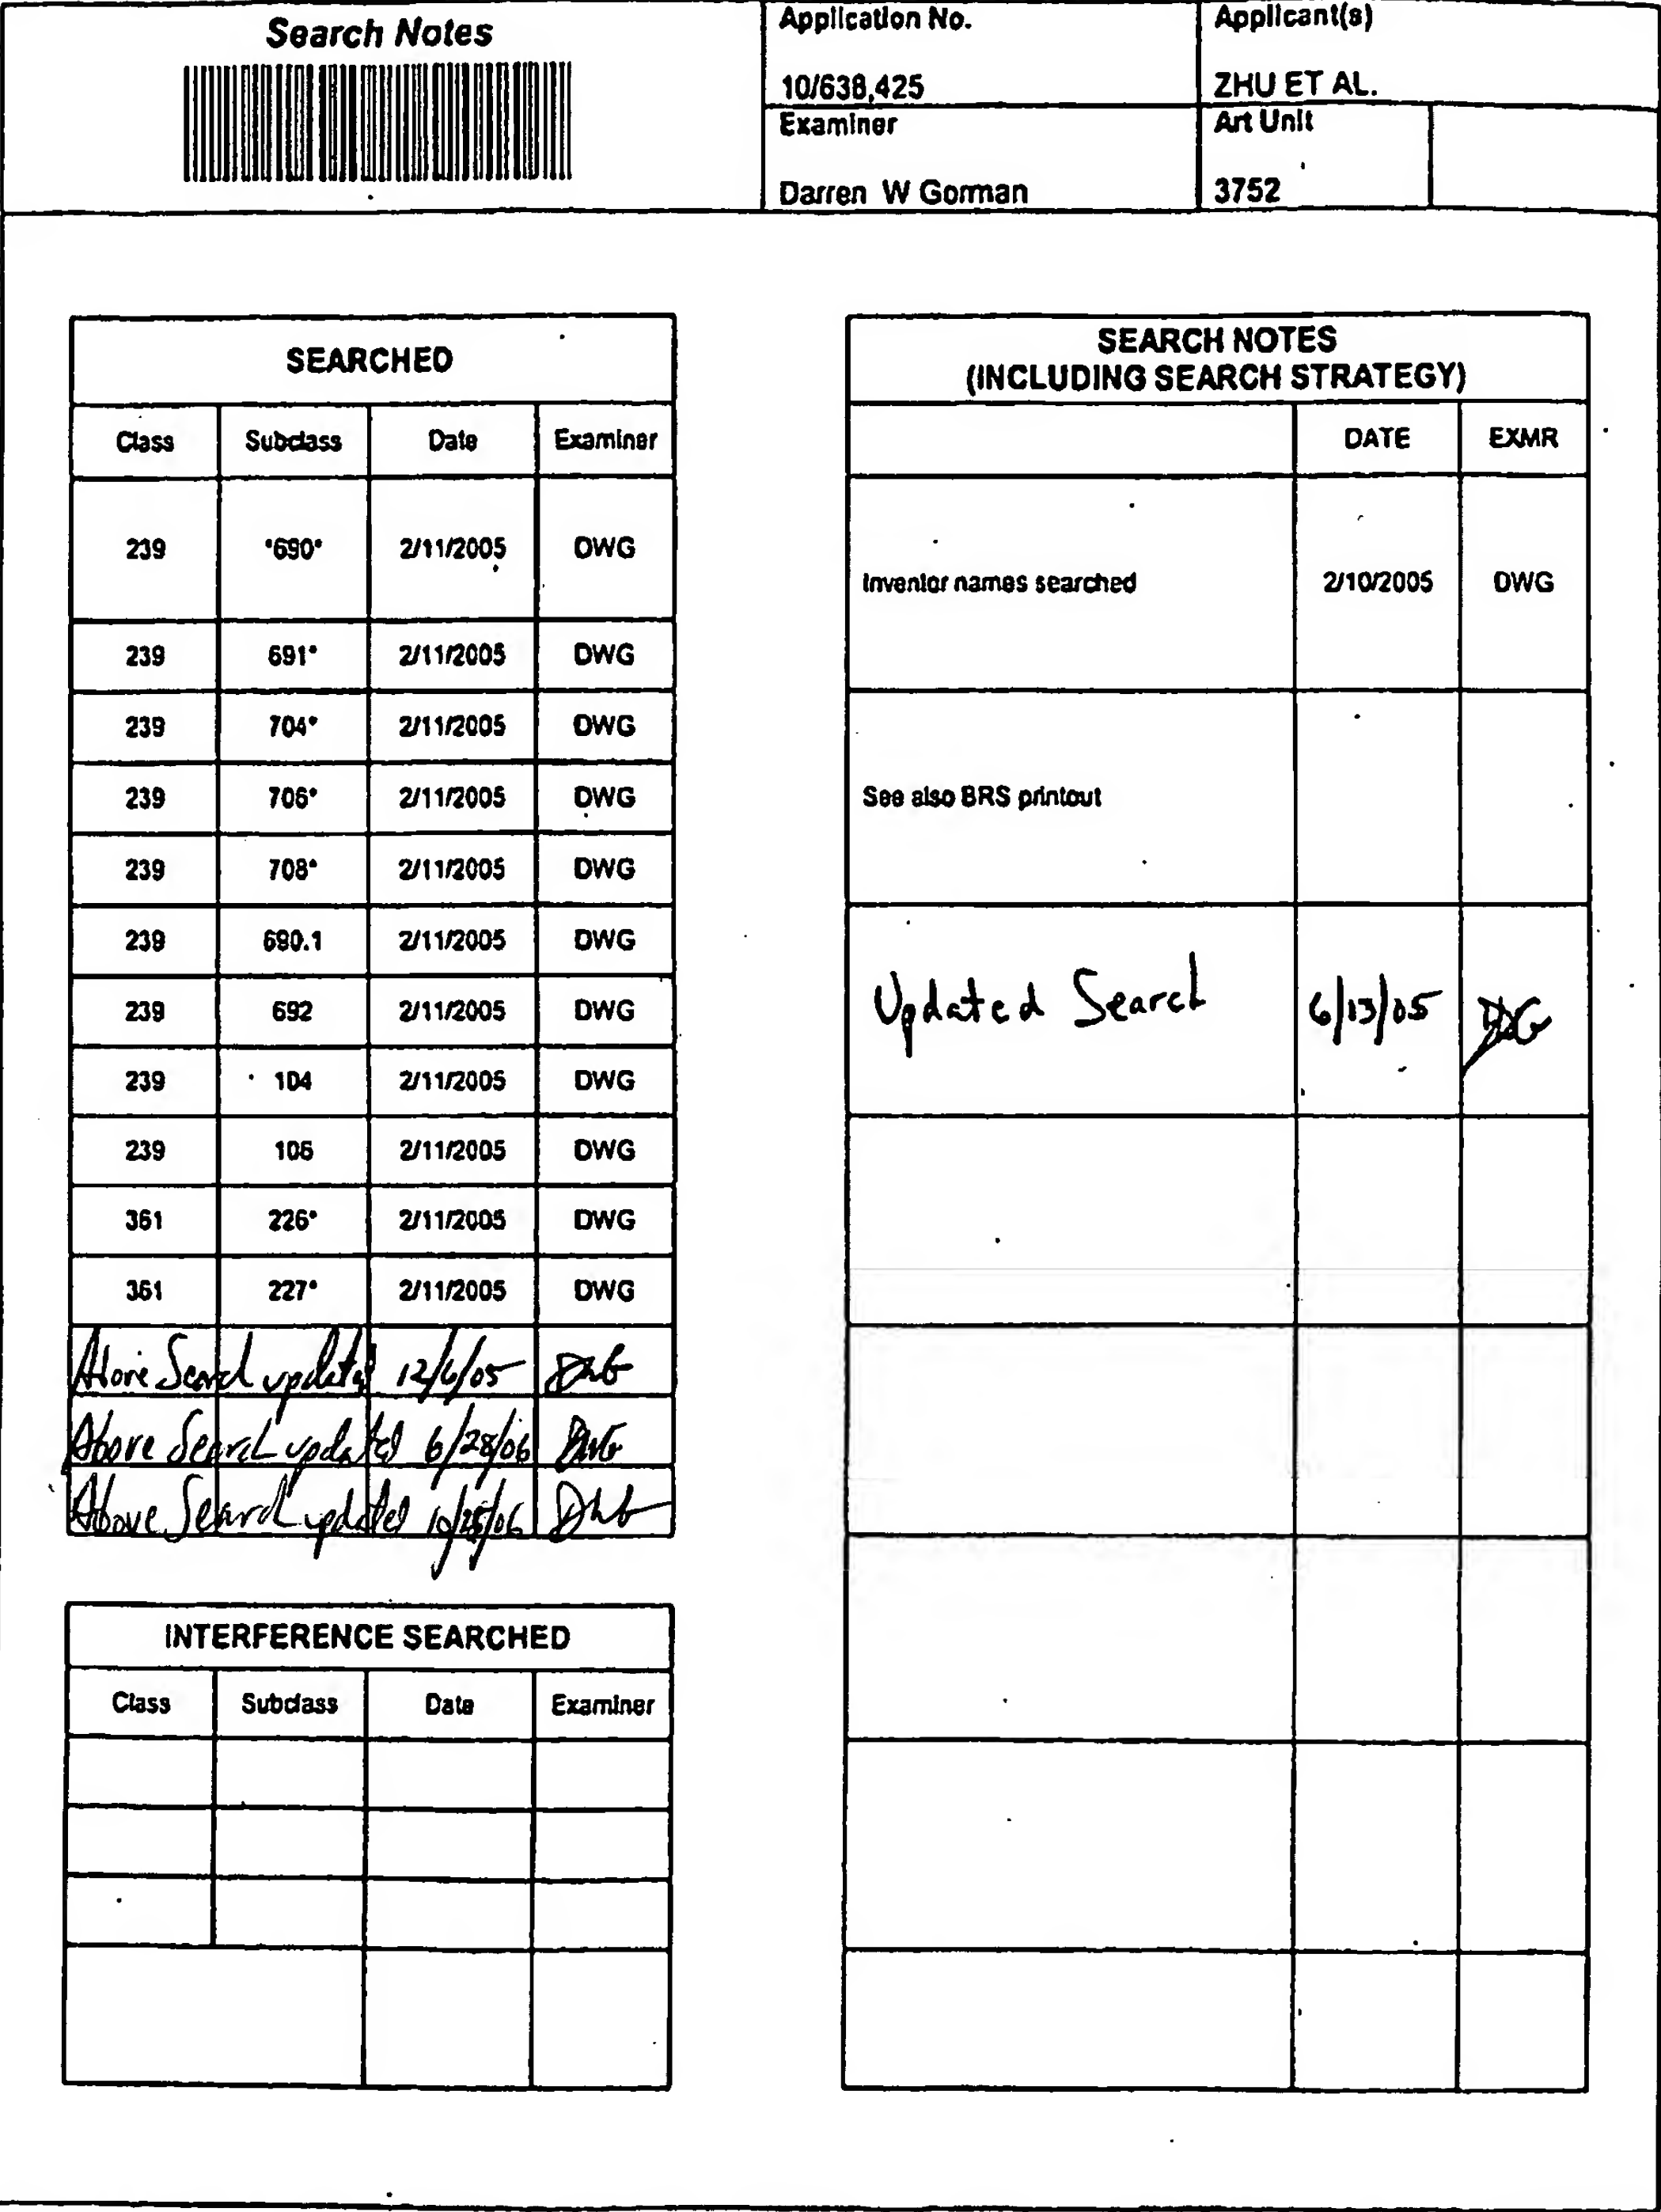 Search Notes
Application No.
Applicant(s)
10/638,425
ZHU ET AL.
Examiner
Art Unit
Darren W Gorman
3752
SEARCHED
Class Subclass Date Examiner
239 *690* 2/11/2005 DWG
239 691* 2/11/2005 DWG
239 704* 2/11/2005 DWG
239 706* 2/11/2005 DWG
239 708* 2/11/2005 DWG
239 690.1 2/11/2005 DWG
239 692 2/11/2005 DWG
239 104 2/11/2005 DWG
239 106 2/11/2005 DWG
361 226* 2/11/2005 DWG
361 227* 2/11/2005 DWG
Above Search updated 12/6/05 DWG
Above Search updated 6/28/06 DWG
Above Search updated 10/25/06 DWG
INTERFERENCE SEARCHED
Class Subclass Date Examiner
SEARCH NOTES
(INCLUDING SEARCH STRATEGY)
DATE EXMR
Inventor names searched 2/10/2005 DWG
See also BRS printout
Updated Search 6/13/05 DWG